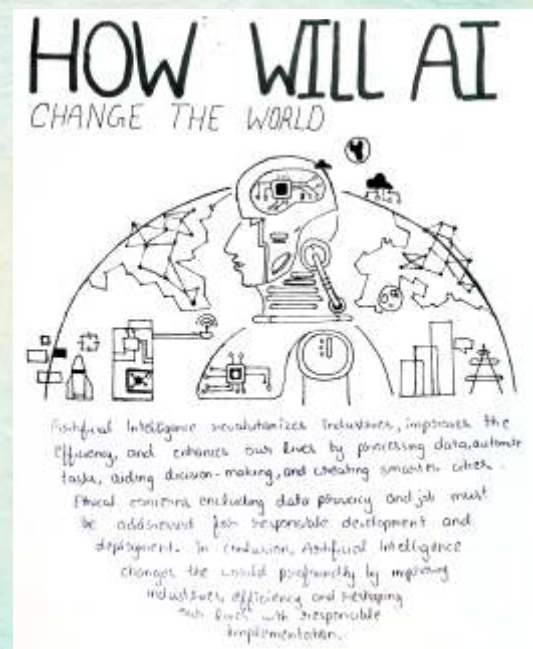 HOW WILL AI
CHANGE THE WORLD
Artifical Intelligence revolutanizes Industries, improves the
efficiency, and enhances our lives by processing data, automate
tasks, aiding decision-making, and creating smarter cities.
Ethical concerns encluding data privacy and job must
be addressed for responsible development and
deployment. In conclusion, Artifical Intelligence
changes the world profoundly by improving
industries efficiency and reshaping
our lives with responsible
implementation.